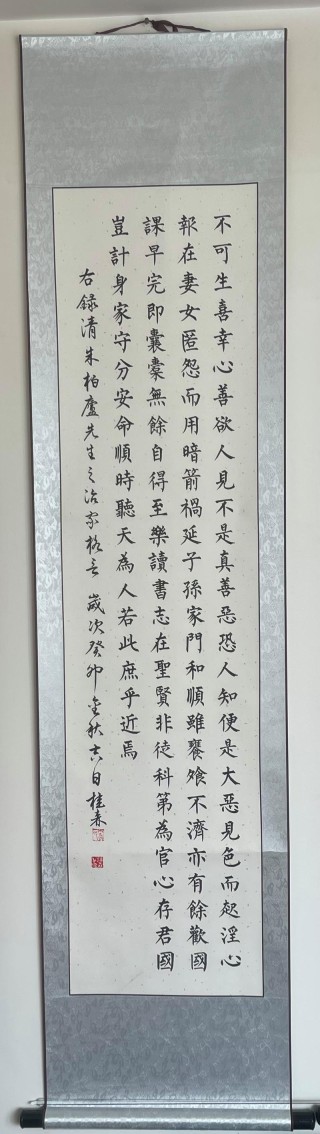 不可生喜幸心善欲人見不是真善惡恐人知便是大惡見色而起淫心
報在妻女匿怨而用暗箭禍延子孫家門和順雖饔飧不濟亦有餘歡國
課早完即囊橐無餘自得至樂讀書志在聖賢非徒科第為官心存君國
豈計身家守分安命順時聽天為人若此庶乎近焉
右錄清朱柏廬先生之治家格言 歲次癸卯金秋吉日桂春